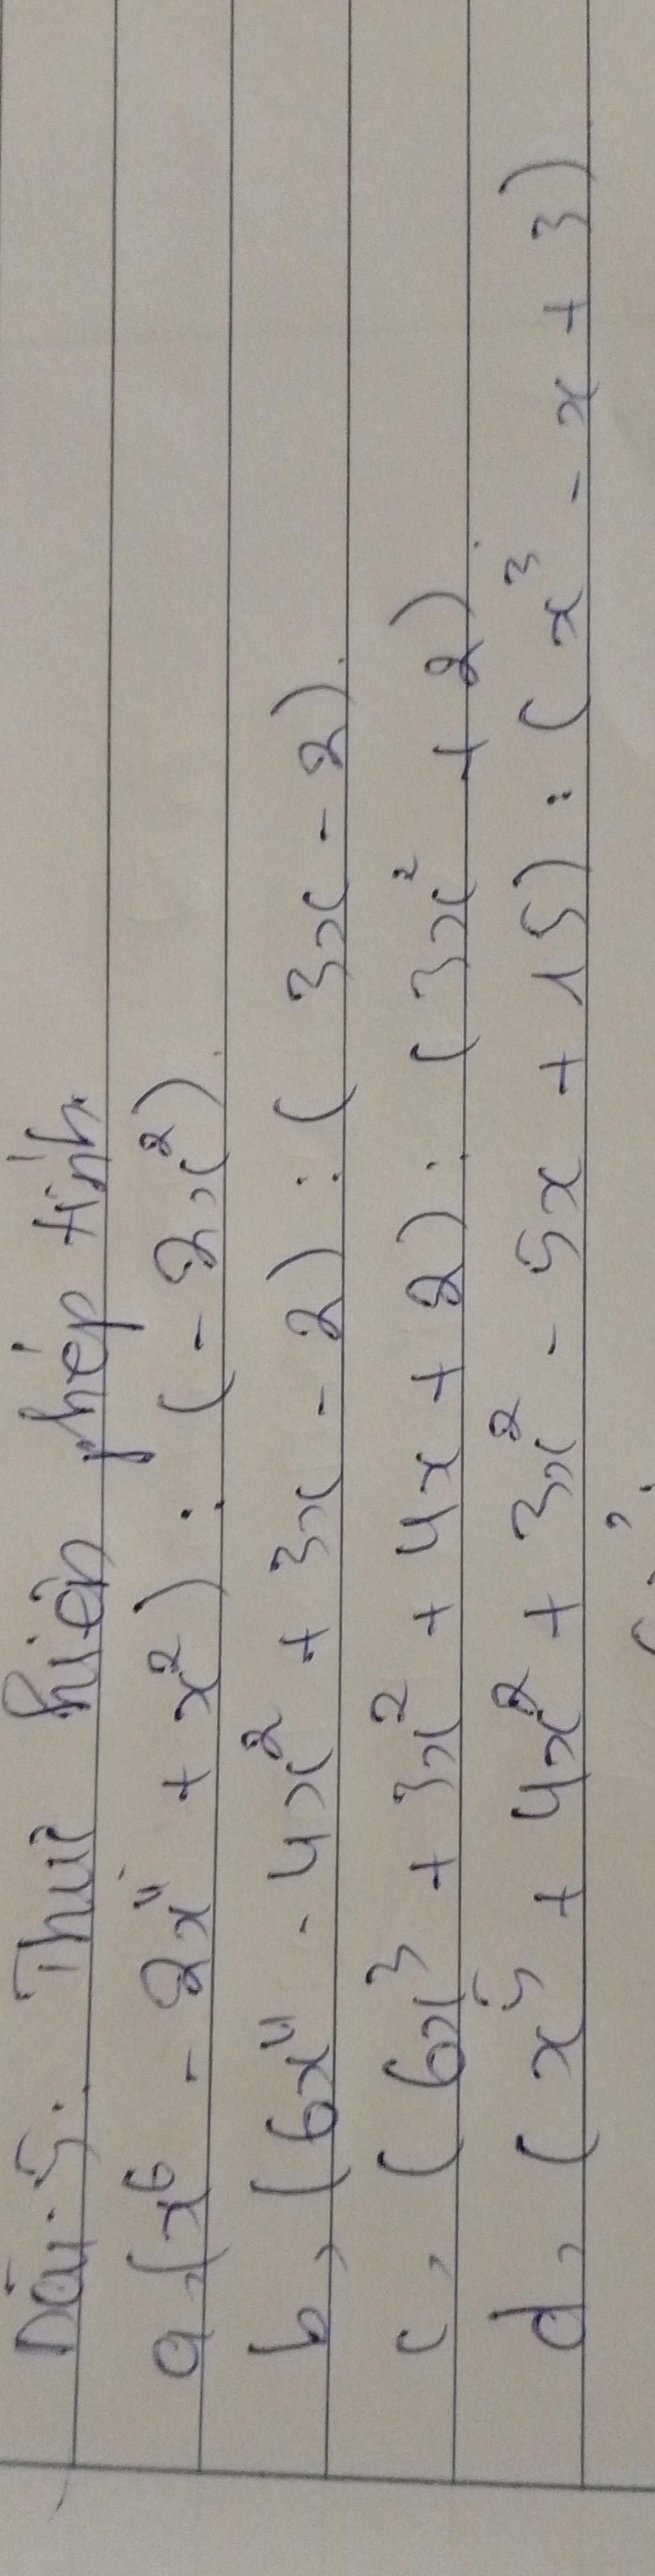 Bài 5: Thực hiện phép tính.
a, (x⁶ - 2x⁴ + x²) : (-2x²).
b, (6x⁴ - 4x² + 3x - 2) : (3x - 2).
c, (6x³ + 3x² + 4x + 2) : (3x² + 2).
d, (x⁵ + 4x² + 3x² - 5x + 15) : (x³ - x + 3)